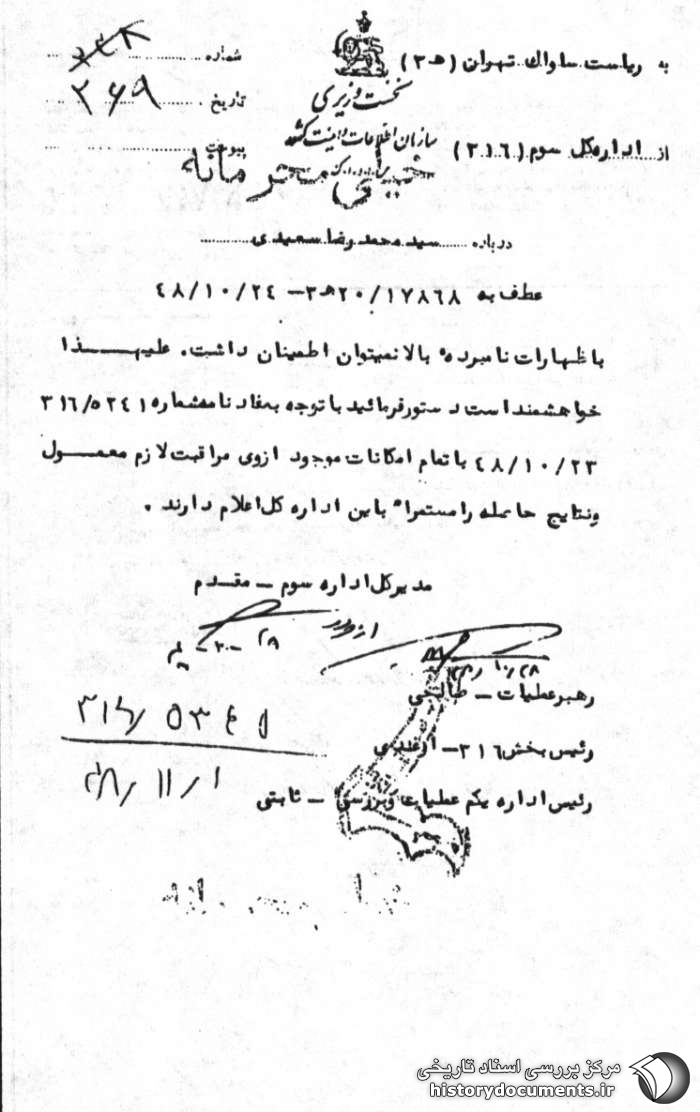 به ریاست ساواک تهران (۳ ه‍)
شماره
۲۶۹
تاریخ
نخست وزیری
سازمان اطلاعات و امنیت کشور
از اداره کل سوم (۳۱۶)
پیوست
خیلی محرمانه
درباره سید محمدرضا سعیدی
عطف به ۲۰/۱۷۸۶۸ ه‍ ۳ – ۴۸/۱۰/۲۴
باظهارات نامبرده بالا نمیتوان اطمینان داشت. علیهـــذا
خواهشمند است دستور فرمائید با توجه بمفاد نامه شماره ۳۱۶/۵۲۴۱
۴۸/۱۰/۲۳ با تمام امکانات موجود ازوی مراقبت لازم معمــول
ونتایج حاصله را مستمراً باین اداره کل اعلام دارند .
مدیرکل اداره سوم – مقــدم
از طرف
۱۰/۲۸
رهبر عملیات – طالتخی
۳۱۶/
رئیس بخش ۳۱۶ – ازغندی
۴۸/۱۱/۱
رئیس اداره یکم عملیات و بررسی – ثابتی
مرکز بررسی اسناد تاریخی
historydocuments.ir